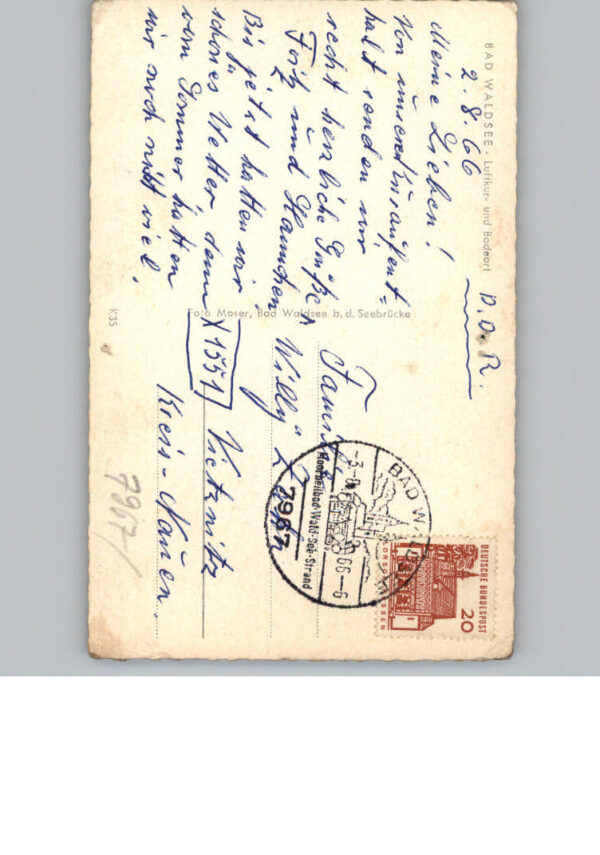 BAD WALDSEE - Luftkur- und Badeort
2.8.66
Meine Lieben!
Von unserem Kuraufent-
halt senden wir
recht herzliche Grüße
Fritz und Hannchen
Bis jetzt hatten wir
schönes Wetter, denn
vom Sommer hatten
wir noch nicht viel.
K35
Foto Moser, Bad Waldsee b.d. Seebrücke
D.D.R.
Familie
Willy
X1551 Vietznitz
Kreis-Nauen
7967
BAD WALDSEE
-3.8.66-6
Moorheilbad-Wald-See-Strand
7967
DEUTSCHE BUNDESPOST
20
LORSCH HESSEN